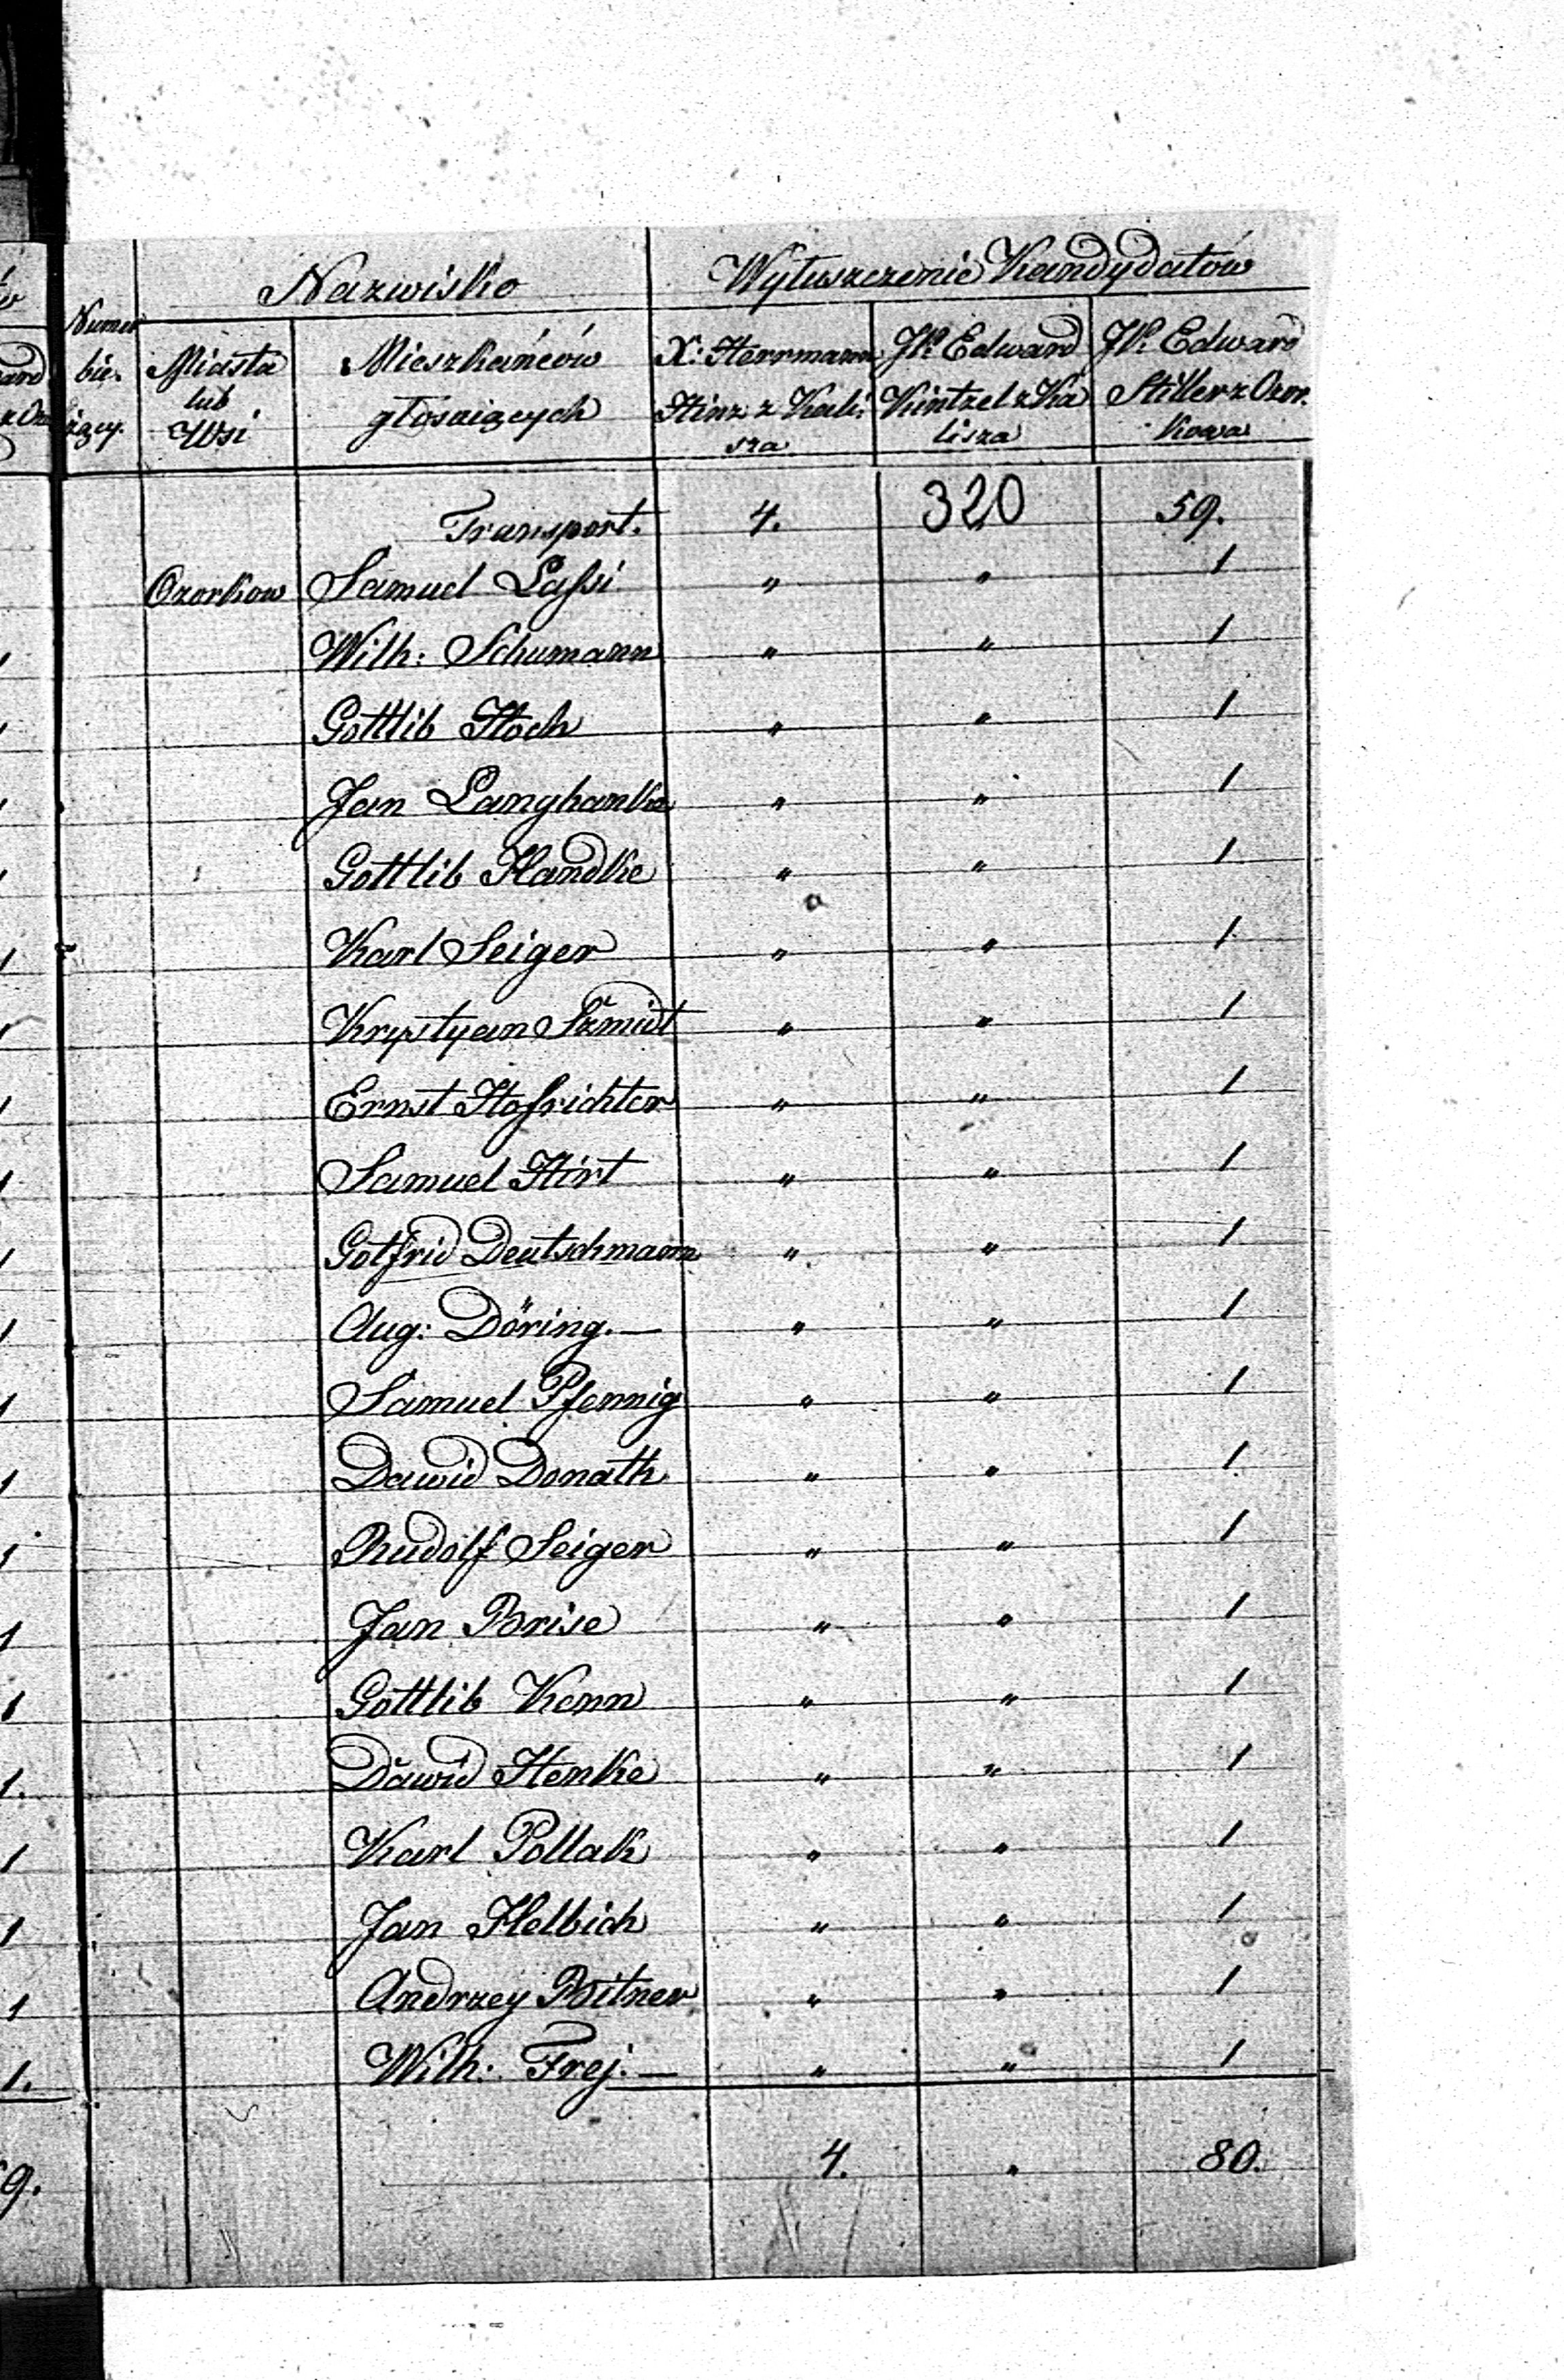 Nazwisko Wyłuszczenie Kandydatów
Numer bie- żący. Miasta lub Wsi Mieszkańców głosuiących X: Herrmann Hinz z Kali- sza JP: Edward Küntzel z Ka lisza JP: Edward Stiller z Ozor- kowa
Transport. 4. 320 59.
Ozorkow Samuel Lassi " " 1
Wilh: Schumann " " 1
Gottlib Hoch " " 1
Jan Langhanke " " 1
Gottlib Handke " " 1
Karl Seiger " " 1
Krystyan Szmidt " " 1
Ernst Hofrichter " " 1
Samuel Hirt " " 1
Gotfrid Deutschmann " " 1
Aug: Döring. — " " 1
Samuel Pfennig " " 1
Dawid Donath " " 1
Rudolf Seiger " " 1
Jan Brise " " 1
Gottlib Kenn " " 1
Dawid Henke " " 1
Karl Pollak " " 1
Jan Helbich " " 1
Andrzey Bitner " " 1
Wilh: Frej. — " " 1
4. " 80.